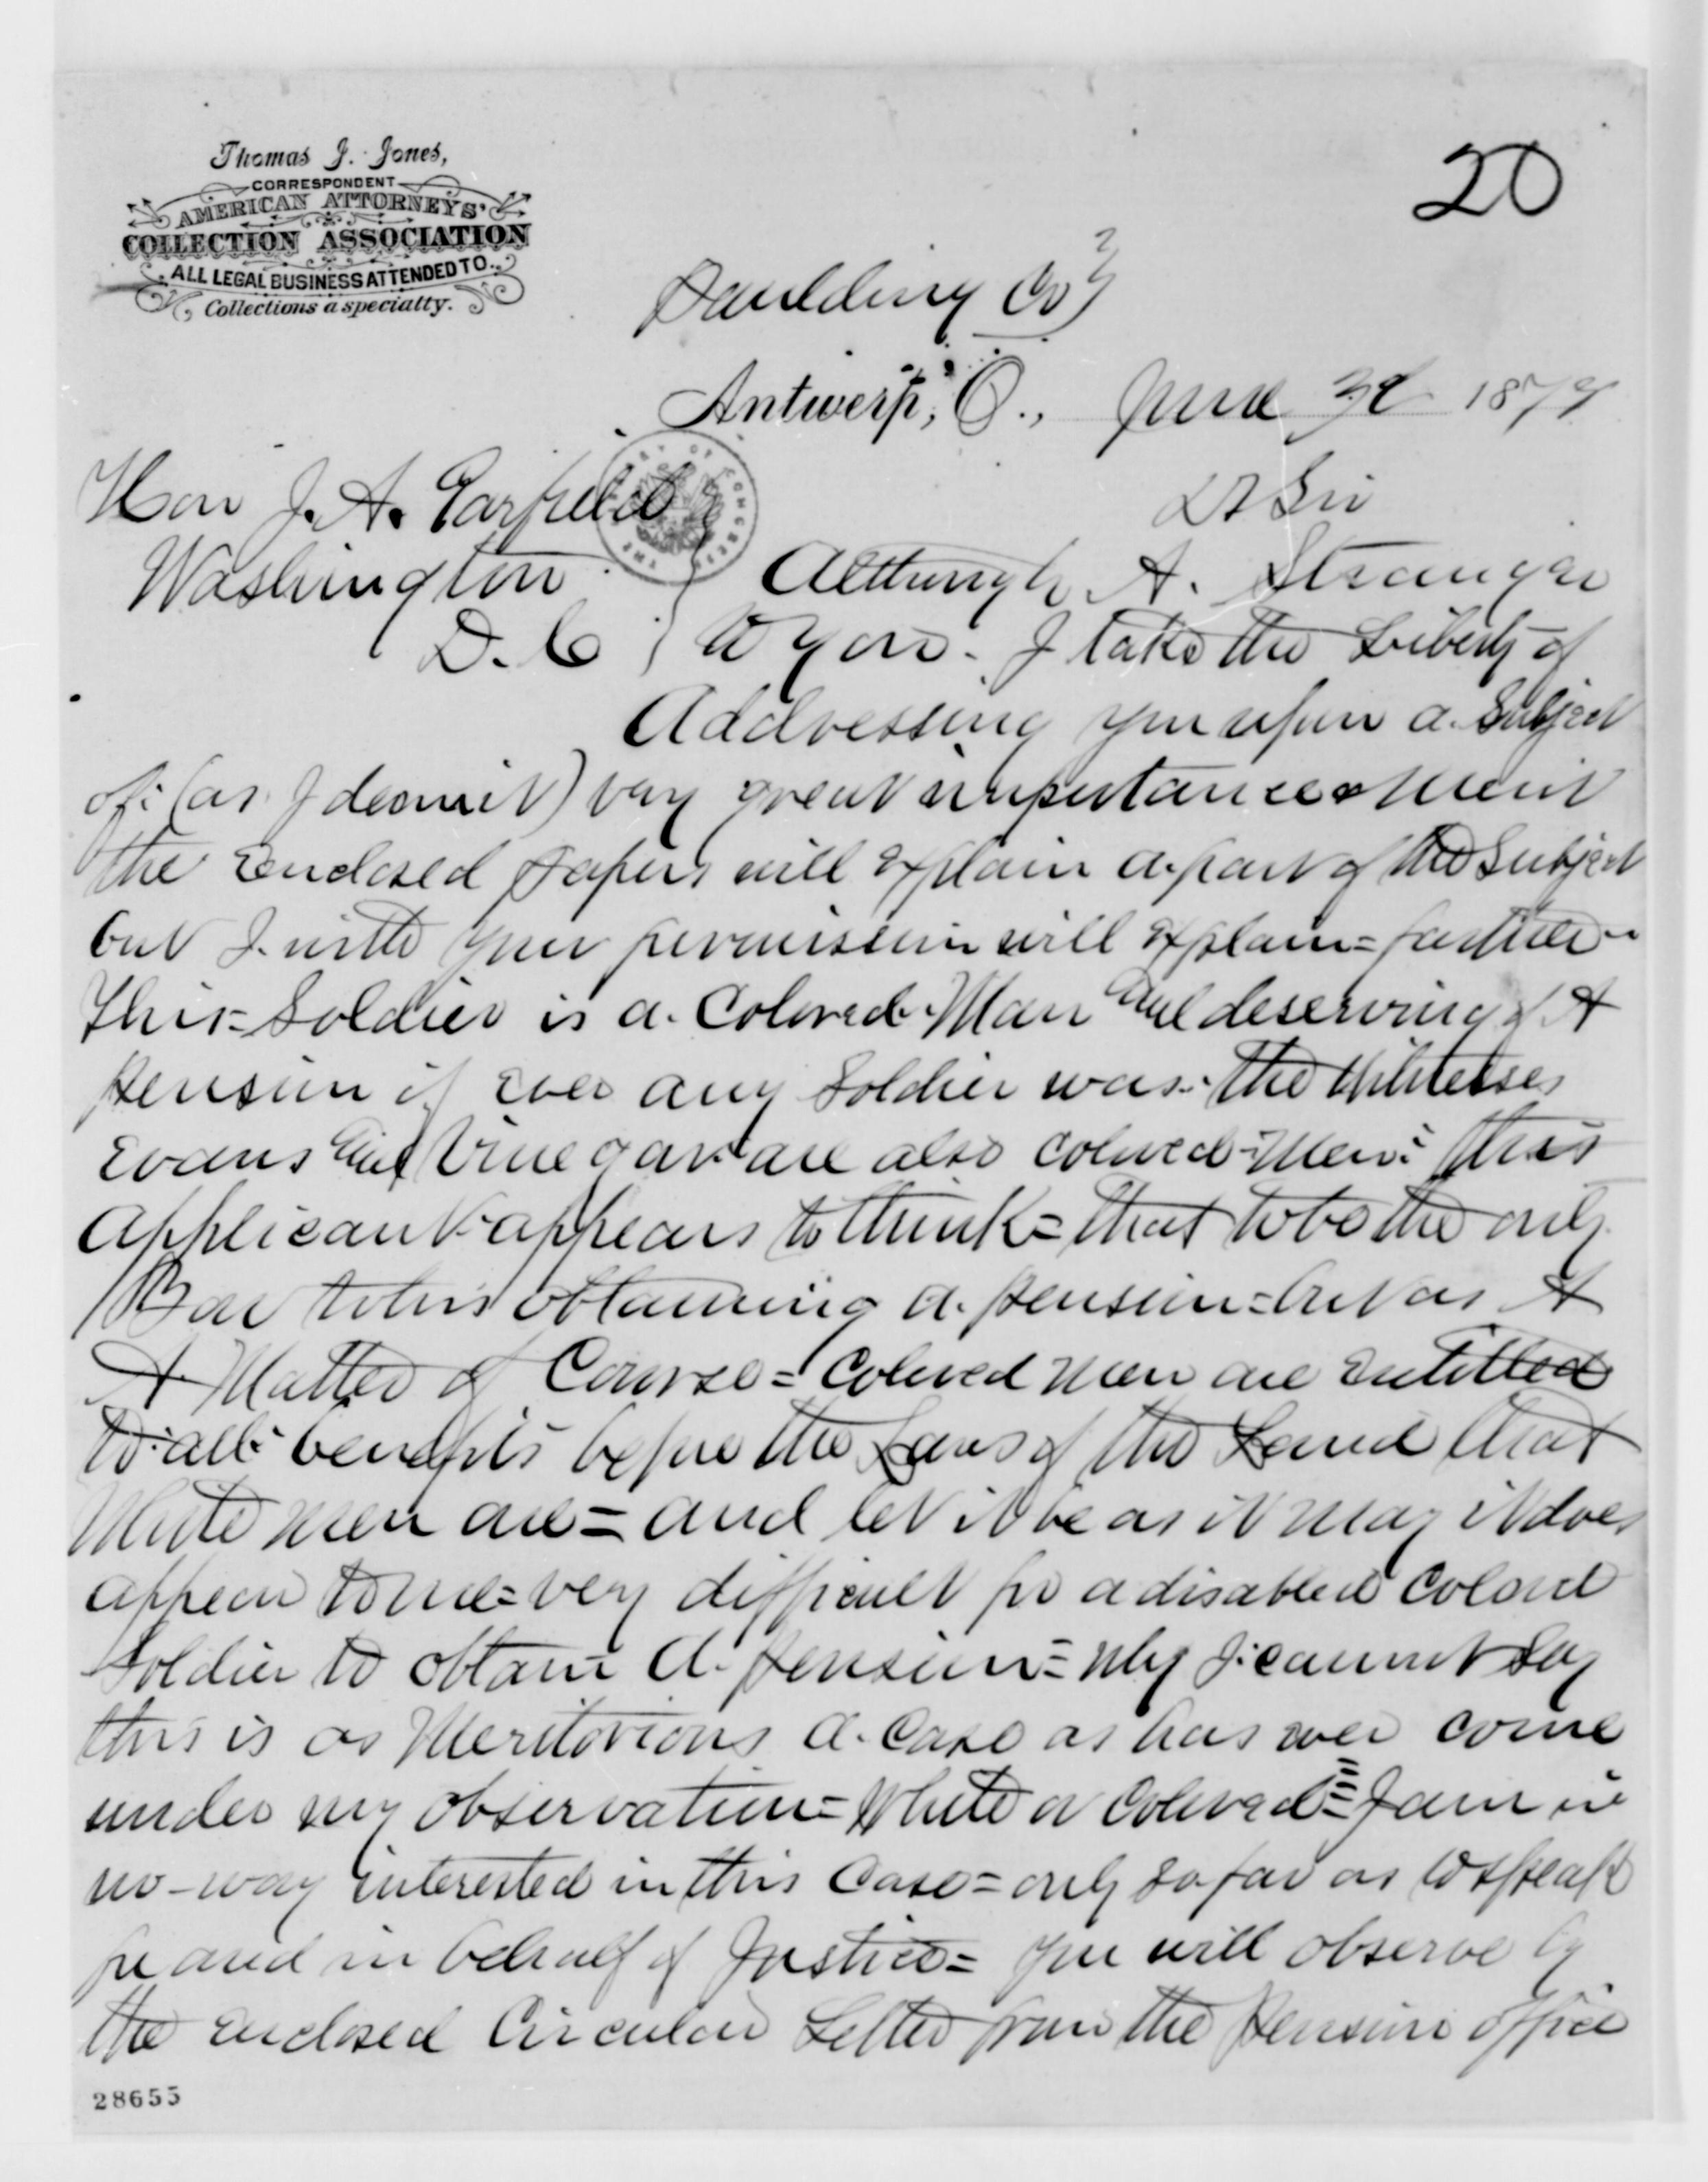 Thomas J. Jones,
CORRESPONDENT
AMERICAN ATTORNEYS'
COLLECTION ASSOCIATION
ALL LEGAL BUSINESS ATTENDED TO.
Collections a specialty.
20
Paulding Co
Antwerp, O., June 1879
Dr Sir
Hon J. A. Garfield
Washington
D. C
Although A. Stranger
to you. I take the Liberty of
Addressing you upon a. Subject
of: (as I deem it) very great importance & Merit
the Enclosed papers will Explain a part of the Subject
but I. with your permission will Explain = further
This = Soldier is a. Colored Man and deserving of A
pension if ever any Soldier was. The Witnesses
Evans and Vinegar are also colored = Men: this
Applicant appears to think = that to be the only
Bar to his obtaining a. pension = but as A
A Matter of Course = Colored men are Entitled
to all benefits before the Laws of the Land that
White men are = and let it be as it May it does
appear to me = very difficult for a disabled Colored
Soldier to obtain A. pension = Why I cannot Say
this is as Meritorious a. Case as has ever come
under my observation = White or Colored = I am in
no - way interested in this Case = only so far as to speak
for and in behalf of Justice = you will observe by
the Enclosed Circular Letter from the Pension office
28655